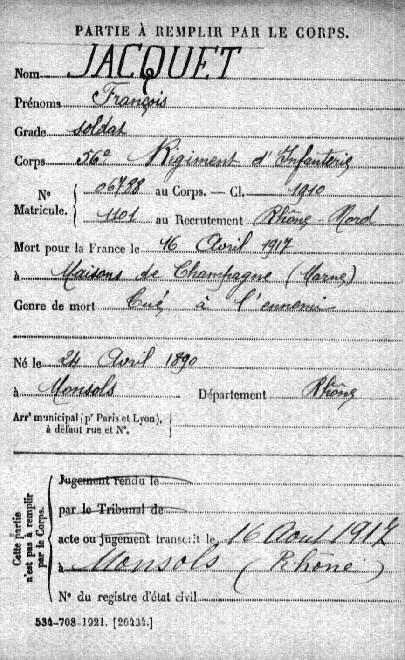 PARTIE À REMPLIR PAR LE CORPS.
Nom JACQUET
Prénoms François
Grade soldat
Corps 56e Régiment d'Infanterie
Nº Matricule. { 06738 au Corps. — Cl. 1910
1101 au Recrutement Rhône-Nord
Mort pour la France le 16 Avril 1917
à Maisons de Champagne (Marne)
Genre de mort Tué à l'ennemi
Né le 24 Avril 1890
à Monsols Département Rhône
Arrt municipal (pr Paris et Lyon), à défaut rue et Nº. }
Cette partie n'est pas à remplir par le Corps. {
Jugement rendu le
par le Tribunal de
acte ou jugement transcrit le 16 Aout 1917
à Monsols (Rhône)
Nº du registre d'état civil
534-708-1921. [26434.]